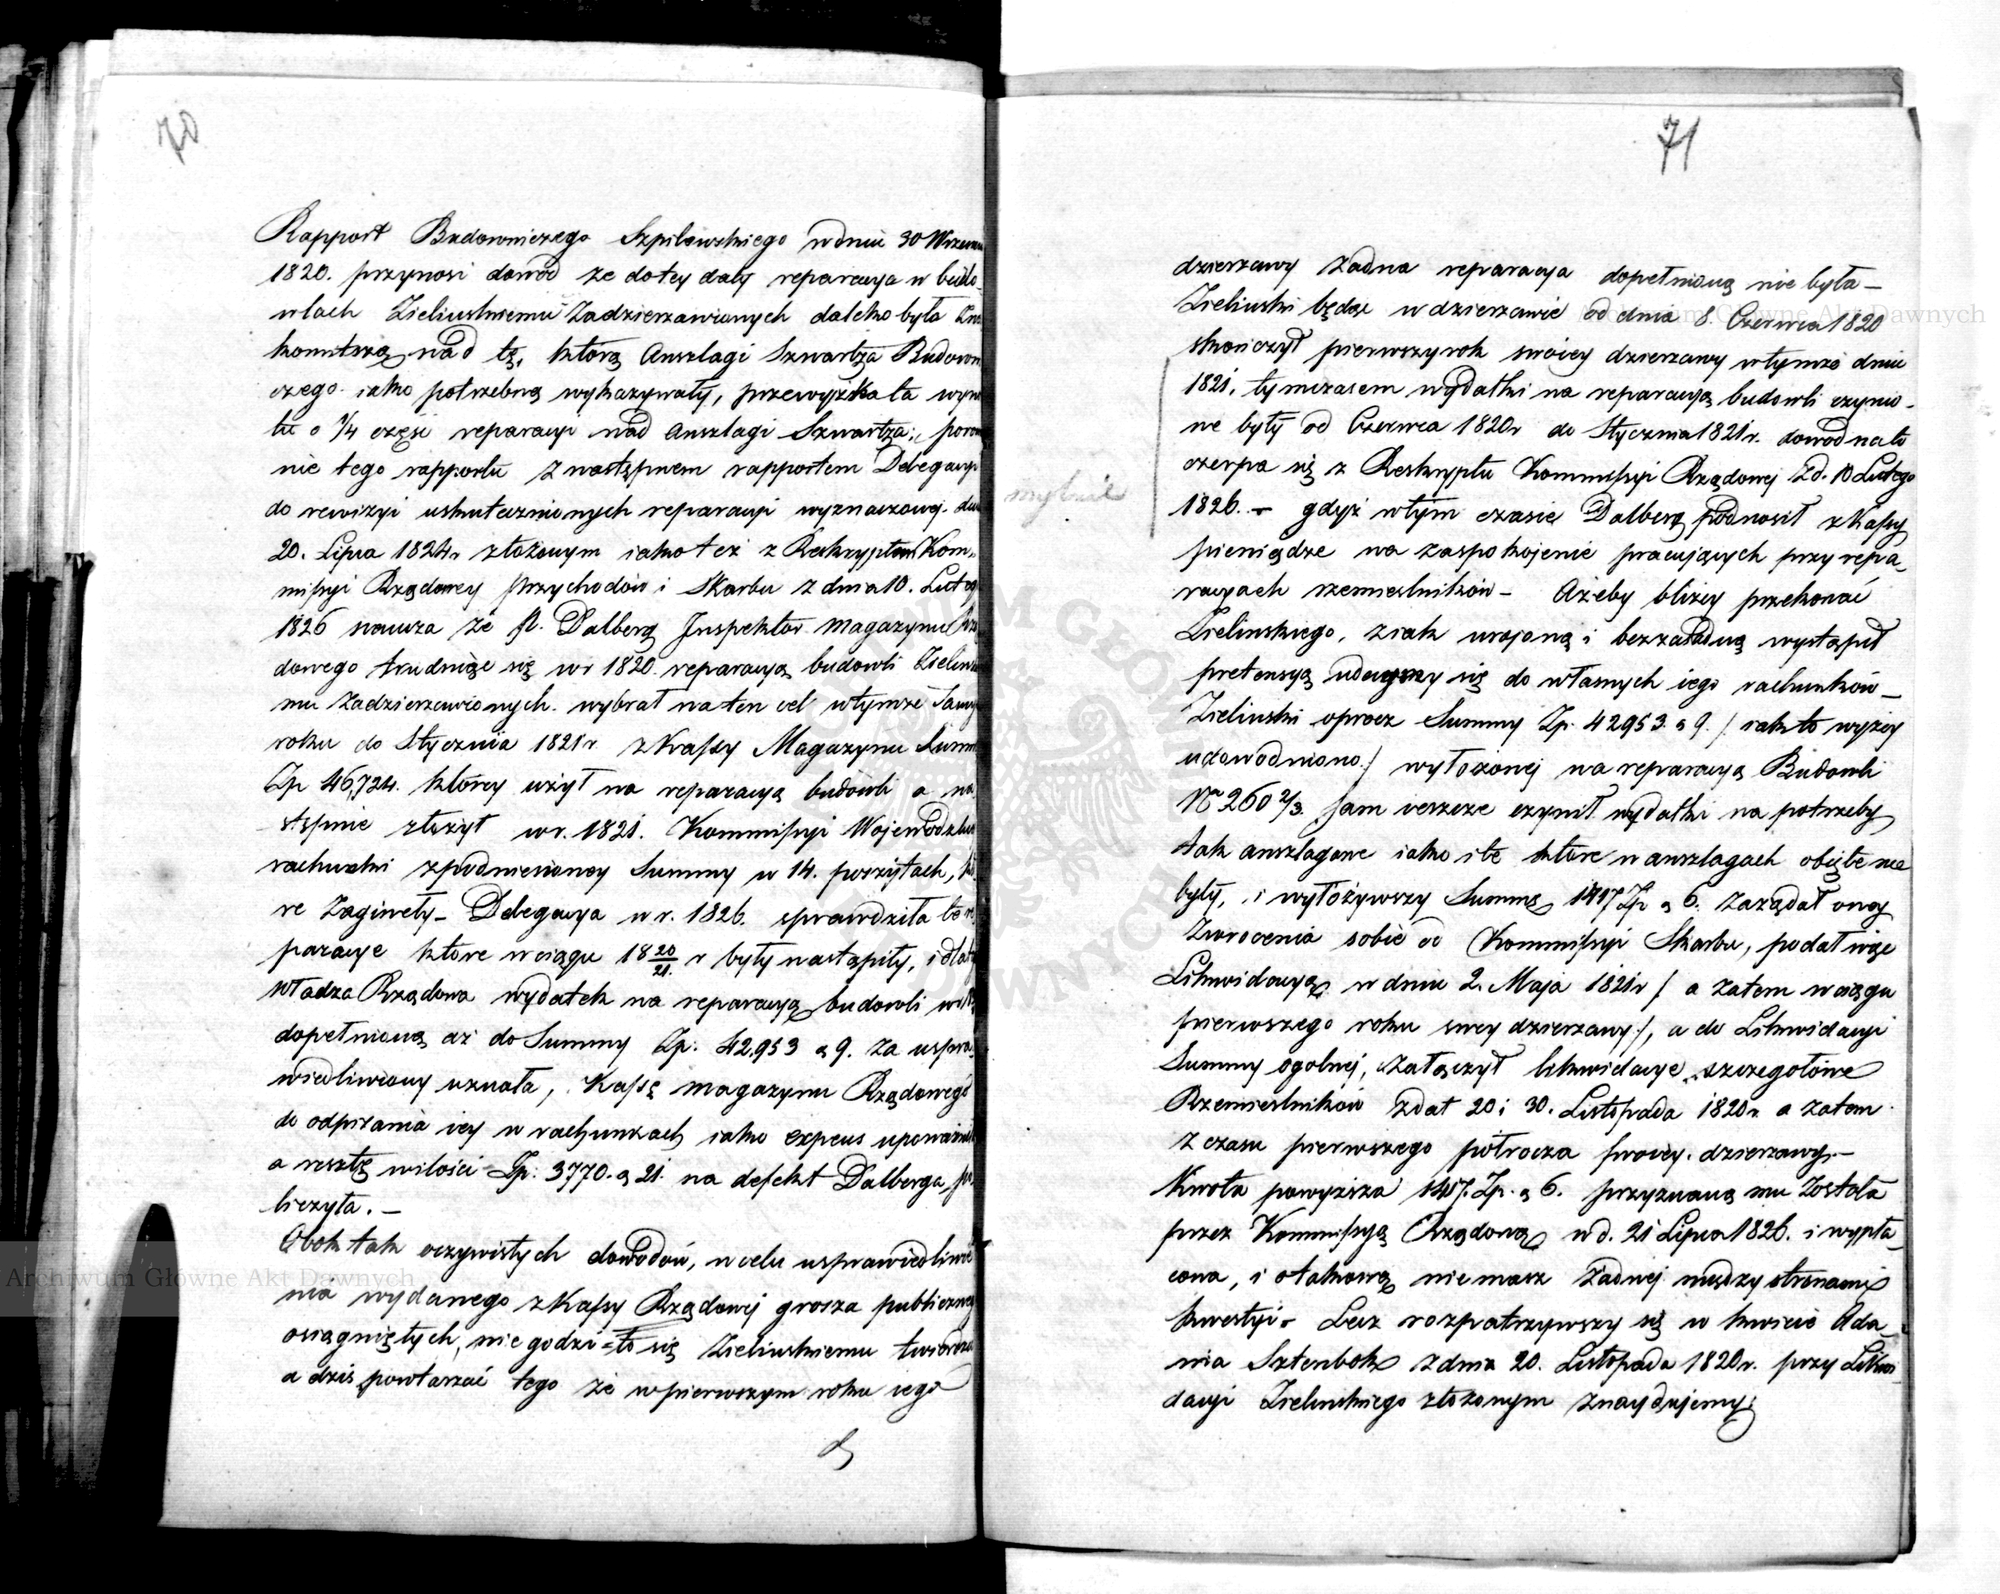 70
Rapport Budowniczego Szpilowskiego w dniu 30 Wrze
1820. przynosi dowód że do tey daty reparacya w budo-
wlach Zielinskiemu Zadzierzawionych daleko była Zna
komitszą nad tę, którą Anszlagi Szwartza Budown
czego iako potrzebną wykazywały, przewyżka ta wyno
tu o ¼ części reparacyi nad Anszlagi Szwartza; porow
nie tego rapportu z następnem rapportem Delegacyi
do rewizyi uskutecznionych reparacyi wyznaczoney
20. Lipca 1824r złożonym iako też z Reskryptem Kom-
missyi Rządowey Przychodów i Skarbu z dnia 10. Luteg
1826 naucza że P. Dalberg Inspektor magazynu Rzą
dowego trudniąc się w r 1820 reparacyą budowli Zielins
mu Zadzierzawionych wybrał na ten cel w tymże Samy
roku do Stycznia 1821r z Kassy Magazynu Summ
Zp 46,724. którey użył na reparacyą budowli a na
stępnie złożył w r. 1821. Kommissyi Wojewodzkiey
rachunki z podniesioney Summy w 14. poszytach, kt
re Zaginęły – Delegacya w r. 1826. sprawdziła te re
paracye które w ciągu 18 20/21. r były nastąpiły, i dlat
Władza Rządowa wydatek na reparacyą budowli w r
dopełnioną aż do Summy Zp. 42,953 g 9. za uspra-
wiedliwiony uznała, Kassę magazynu Rządowego
do odpisania iey w rachunkach iako expens upoważni
a resztę w ilości Zp: 3770. g 21. na defekt Dalberga po
liczyła. –
Obok tak oczywistych dowodów, w celu usprawiedliwie
nia wydanego z Kassy Rządowej grosza publiczneg
osiągniętych, nie godzi-ło się Zielinskiemu twierdz
a dziś powtarzać tego że w pierwszym roku iego
71
dzierzawy żadna reparacya dopełnioną nie była –
Zielinski będąc w dzierzawie od dnia 8 Czerwca 1820
skończył pierwszy rok swoiey dzierzawy w tymże dniu
1821, tymczasem wydatki na reparacyą budowli czynio-
ne były od Czerwca 1820r do Stycznia 1821r. dowód na to
czerpa się z Reskryptu Kommissyi Rządowej Z d. 10 Lutego
1826. – gdyż w tym czasie Dalberg podnosił z Kassy
mylnie
pieniądze na zaspokojenie pracujących przy repa-
racyach rzemieslników – Ażeby bliżey przekonać
Zielinskiego, z iak urojoną i bezzasadną wystąpił
pretensyą udaymy się do własnych iego rachunków –
Zielinski oprocz Summy Zp. 42953. g 9. / iak to wyżey
udowodniono / wyłożonej na reparacyą Budowli
Nr 260 2/3 sam ieszcze czynił wydatki na potrzeby
tak anszlagowe iako i te które w anszlagach objęte nie
były, i wyłożywszy Summę 1417 Zp g 6. zażądał oney
Zwrocenia sobie od Kommissyi Skarbu, podał więc
Likwidacyą w dniu 2. Maja 1821r / a zatem w ciągu
pierwszego roku swey dzierzawy /, a do Likwidacyi
Summy ogolnej, załączył likwidacye szczegolowe
Rzemieslników z dat 20 i 30. Listopada 1820r. a zatem
z czasu pierwszego półrocza swoiey dzierzawy. –
Kwota powyższa 1417. Zp. g 6. przyznaną mu została
przez Kommissyą Rządową w d. 21 Lipca 1826. i wypła-
cona, i o takową niemasz żadnej między stronami
kwestyi – Lecz rozpatrzywszy się w kwicie Ada-
ma Sztenbok z dnia 20. Listopada 1820r. przy Likwi-
dacyi Zielinskiego złożonym znaydujemy:
Archiwum Główne Akt Dawnych